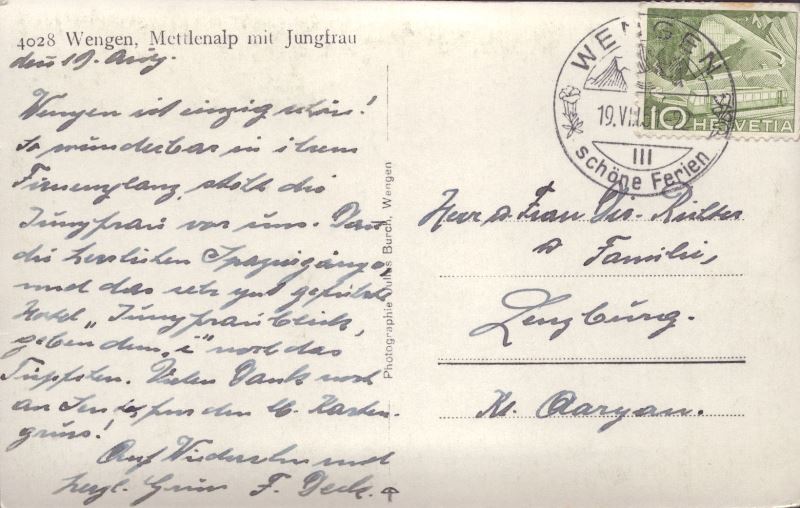 4028 Wengen, Mettlenalp mit Jungfrau
den 19. Aug.
Wengen ist einzig schön!
So wunderbar in ihrem
Firnenglanz, steht die
Jungfrau vor uns. Dazu
die herrlichen Spaziergänge
und das sehr gut geführte
Hotel „Jungfraublick,
geben dem „i" noch das
Tüpfchen. Vielen Dank noch
an Sen für den lb. Karten-
gruss!
Auf Wiedersehen und
herzl. Gruss F. Deck.
Photographie Julius Burch, Wengen
WENGEN
19.VIII.
III
schöne Ferien
10 HELVETIA
Herr & Frau Dir. Richter
& Familie,
Lenzburg.
Kt. Aargau.